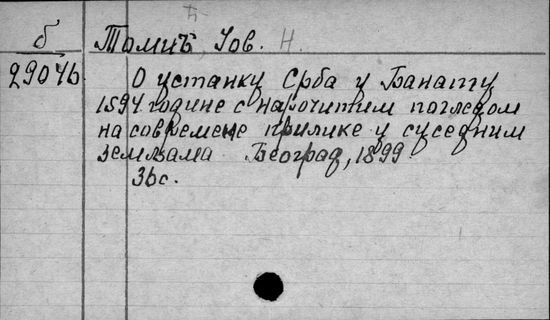 б Томиъ, Јов. Н.
29046 О устанку Срба у Банату
1594 године с нарочитим погледом
на современе прилике у суседним
земљама Београд, 1899
36с.